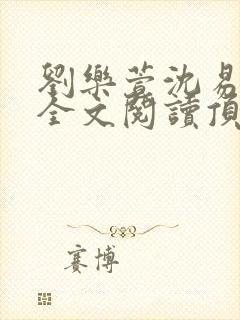 劉樂萱沈易
全文閱讀頂
賽博